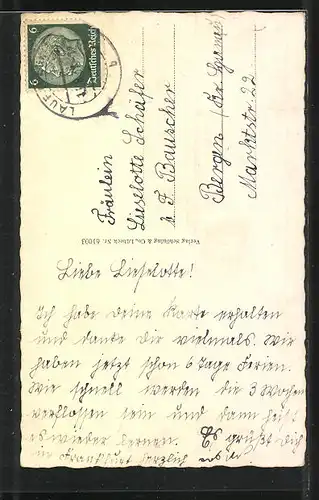 6 Deutsches Reich 6
LAUF
Fräulein
Lieselotte Schäfer
b. F. Bauscher
Bergen /
Marktstr. 22
Verlag Schöning & Co., Lübeck Nr.
Liebe Lieselotte!
Ich habe deine Karte erhalten
und danke dir vielmals. Wir
haben jetzt schon 6 Tage Ferien.
Wie schnell werden die 3 Wochen
verflossen sein und dann heißt
es wieder lernen. Es grüßt Dich
in Frankfurt herzlich